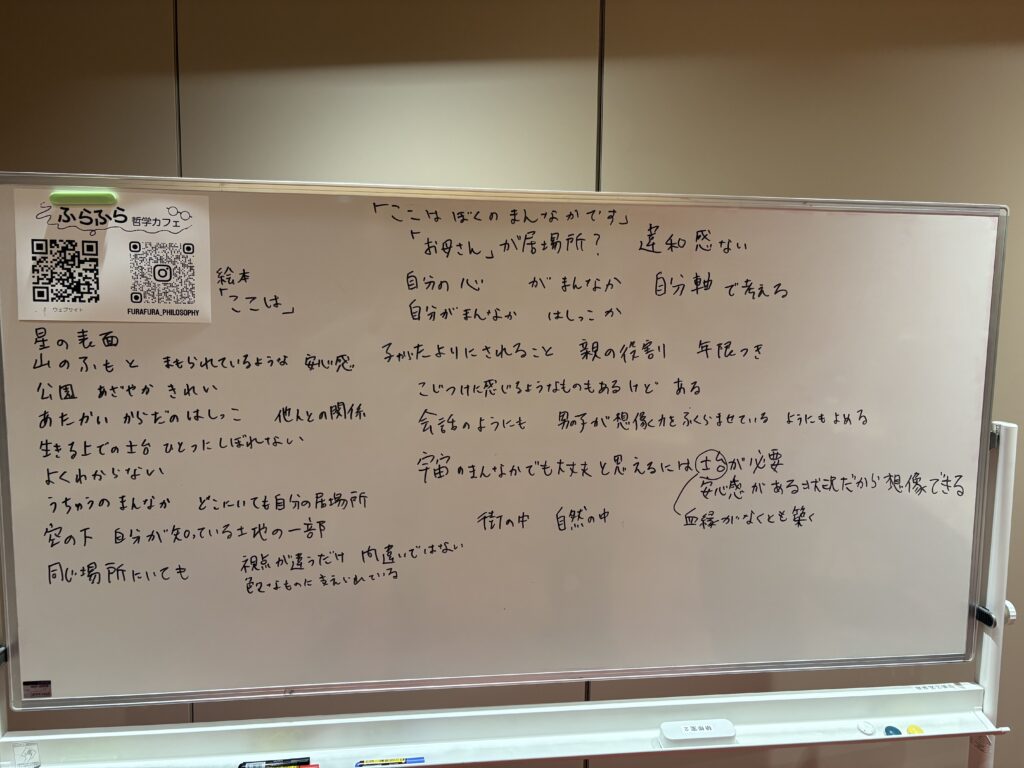 ふらふら 哲学カフェ
ウェブサイト
FURAFURA_PHILOSOPHY
絵本
「ここは」
星の表面
山のふもと まもられているような 安心感
公園 あざやか きれい
あたかい からだのはしっこ 他人との関係
生きる上での土台 ひとつにしぼれない
よくわからない
うちゅうのまんなか どこにいても自分の居場所
空の下 自分が知っている土地の一部
同じ場所にいても
視点が違うだけ 間違いではない
色々なものに支えられている
「ここは ぼくの まんなかです」
「お母さん」が居場所? 違和感ない
自分の心 がまんなか 自分軸で考える
自分がまんなか はしっこか
子がたよりにされること 親の役割 年限つき
こじつけに感じるようなものもあるけど ある
会話のようにも 男の子が想像力をふくらませている ようにもよめる
宇宙のまんなかでも大丈夫と思えるには土台が必要
安心感がある状況だから想像できる
血縁がなくとも築く
街の中 自然の中